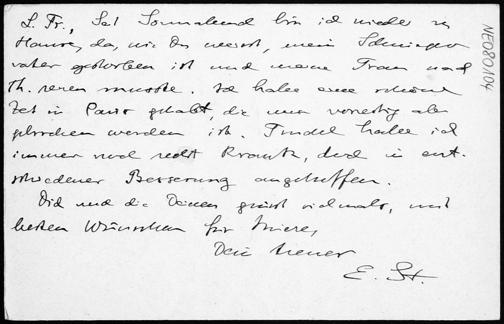 L. Fr., Seit Sonnabend bin ich wieder zu
Hause, da, wie Du weisst, mein Schwieger-
vater gestorben ist und meine Frau nach
Th. reisen musste. Ich habe eine schöne
Zeit in Paris gehabt, die nun vorzeitig ab-
gebrochen worden ist. Friedel habe ich
immer noch recht krank, doch in ent-
schiedener Besserung angetroffen.
Dich und die Deinen grüsst vielmals, mit
besten Wünschen für
Dein treuer
E. St.
NE080/104